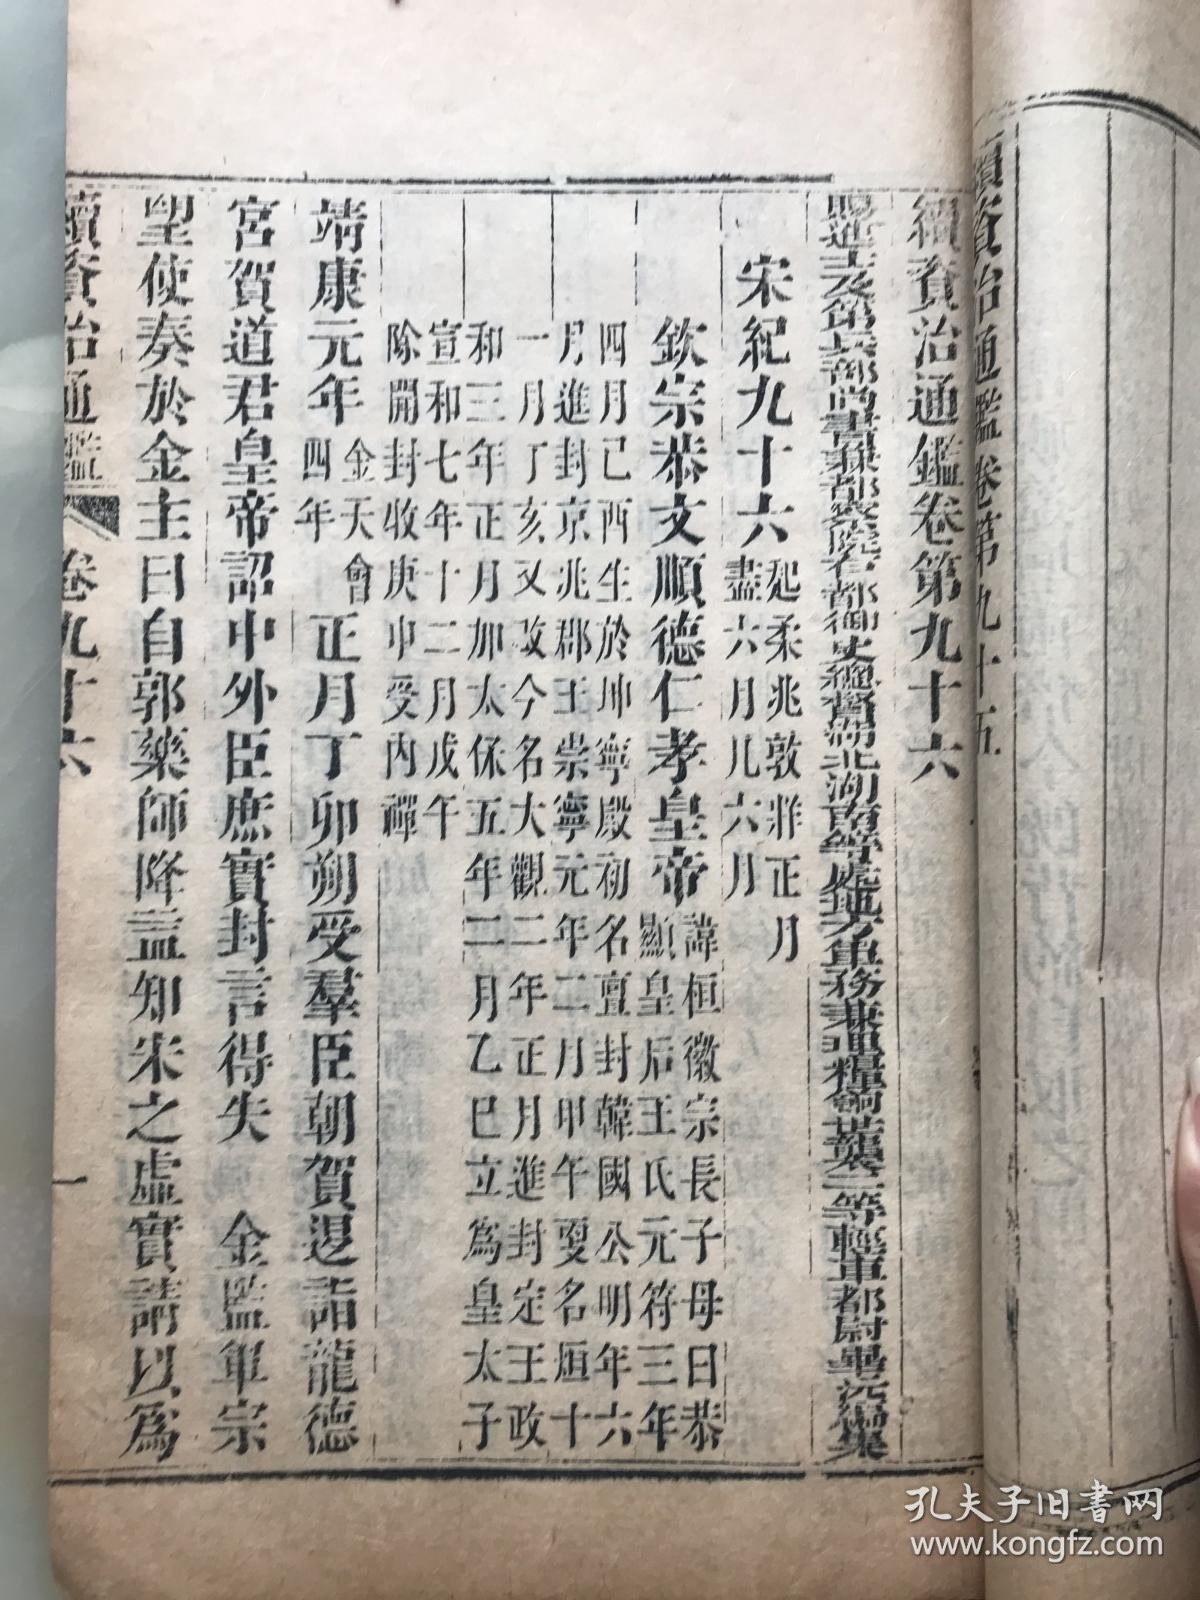 續資治通鑑卷第九十五
續資治通鑑卷第九十六
賜進士及第兵部尚書兼都察院右都御史總督湖北湖南等處地方軍務兼理糧餉世襲二等輕車都尉畢沅編集
宋紀九十六 起柔兆敦牂正月
盡六月凡六月
欽宗恭文順德仁孝皇帝 諱桓徽宗長子母曰恭
顯皇后王氏元符三年
四月己酉生於坤寧殿初名亶封韓國公明年六
月進封京兆郡王崇寧元年二月甲午更名烜十
一月丁亥又改今名大觀二年正月進封定王政
和三年正月加太保五年二月乙巳立為皇太子
宣和七年十二月戊午
除開封牧庚申受內禪
靖康元年 金天會
四年
正月丁卯朔受羣臣朝賀退詣龍德
宮賀道君皇帝詔中外臣庶實封言得失 金監軍宗
望使奏於金主曰自郭藥師降益知宋之虛實請以為
續資治通鑑 卷九十六 一
孔夫子旧书网
www.kongfz.com